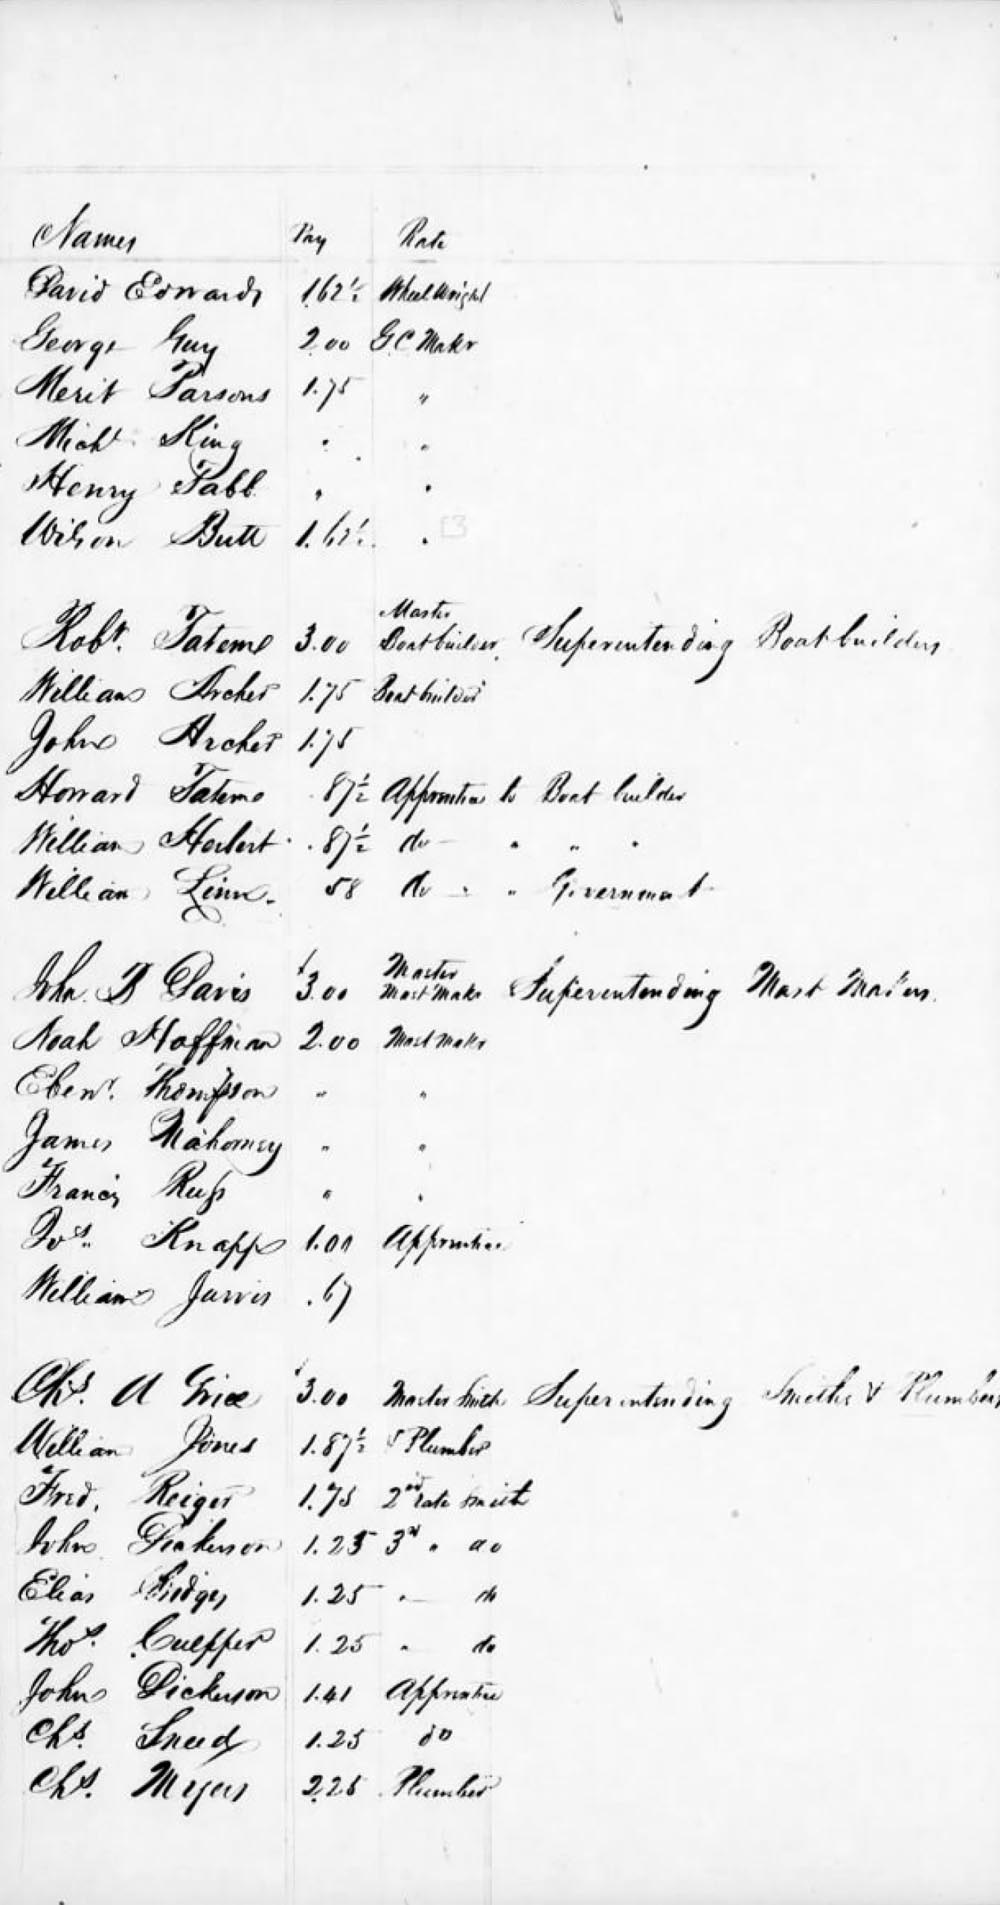 Names Pay Rate
David Edwards 1.62½ Wheelwright
George Guy 2.00 G C Maker
Merit Parsons 1.75 "
Michl. King " "
Henry Tabb " "
Wilson Butt 1.62½ "
Master
Robt. Tateme 3.00 Boatbuilder, Superentending Boatbuilders
William Archer 1.75 Boatbuilder
John Archer 1.75
Howard Tateme .87½ Apprentice to Boat builder
William Herbert .87½ do " " "
William Linn 58 do " " Government
Master
John. D Davis $3.00 Mast Maker Superentending Mast Makers.
Noah Hoffman 2.00 Mast Maker
Ebenr. Thompson " "
James Mahorney " "
Francis Russ " "
Jos. Knapp 1.00 Apprentice
William Jarvis .67
Chs. A Grice $3.00 Master Smith Superintending Smiths & Plumbers
William Jones 1.87½ & Plumber
Fred. Reiger 1.75 2nd rate Smith
John 1.25 3rd " do
Elias 1.25 " do
Thos. Culpper 1.25 " do
John Dickerson 1.41 Apprentice
Chs. Sneed 1.25 do
Chs. Myers 2.25 Plumber